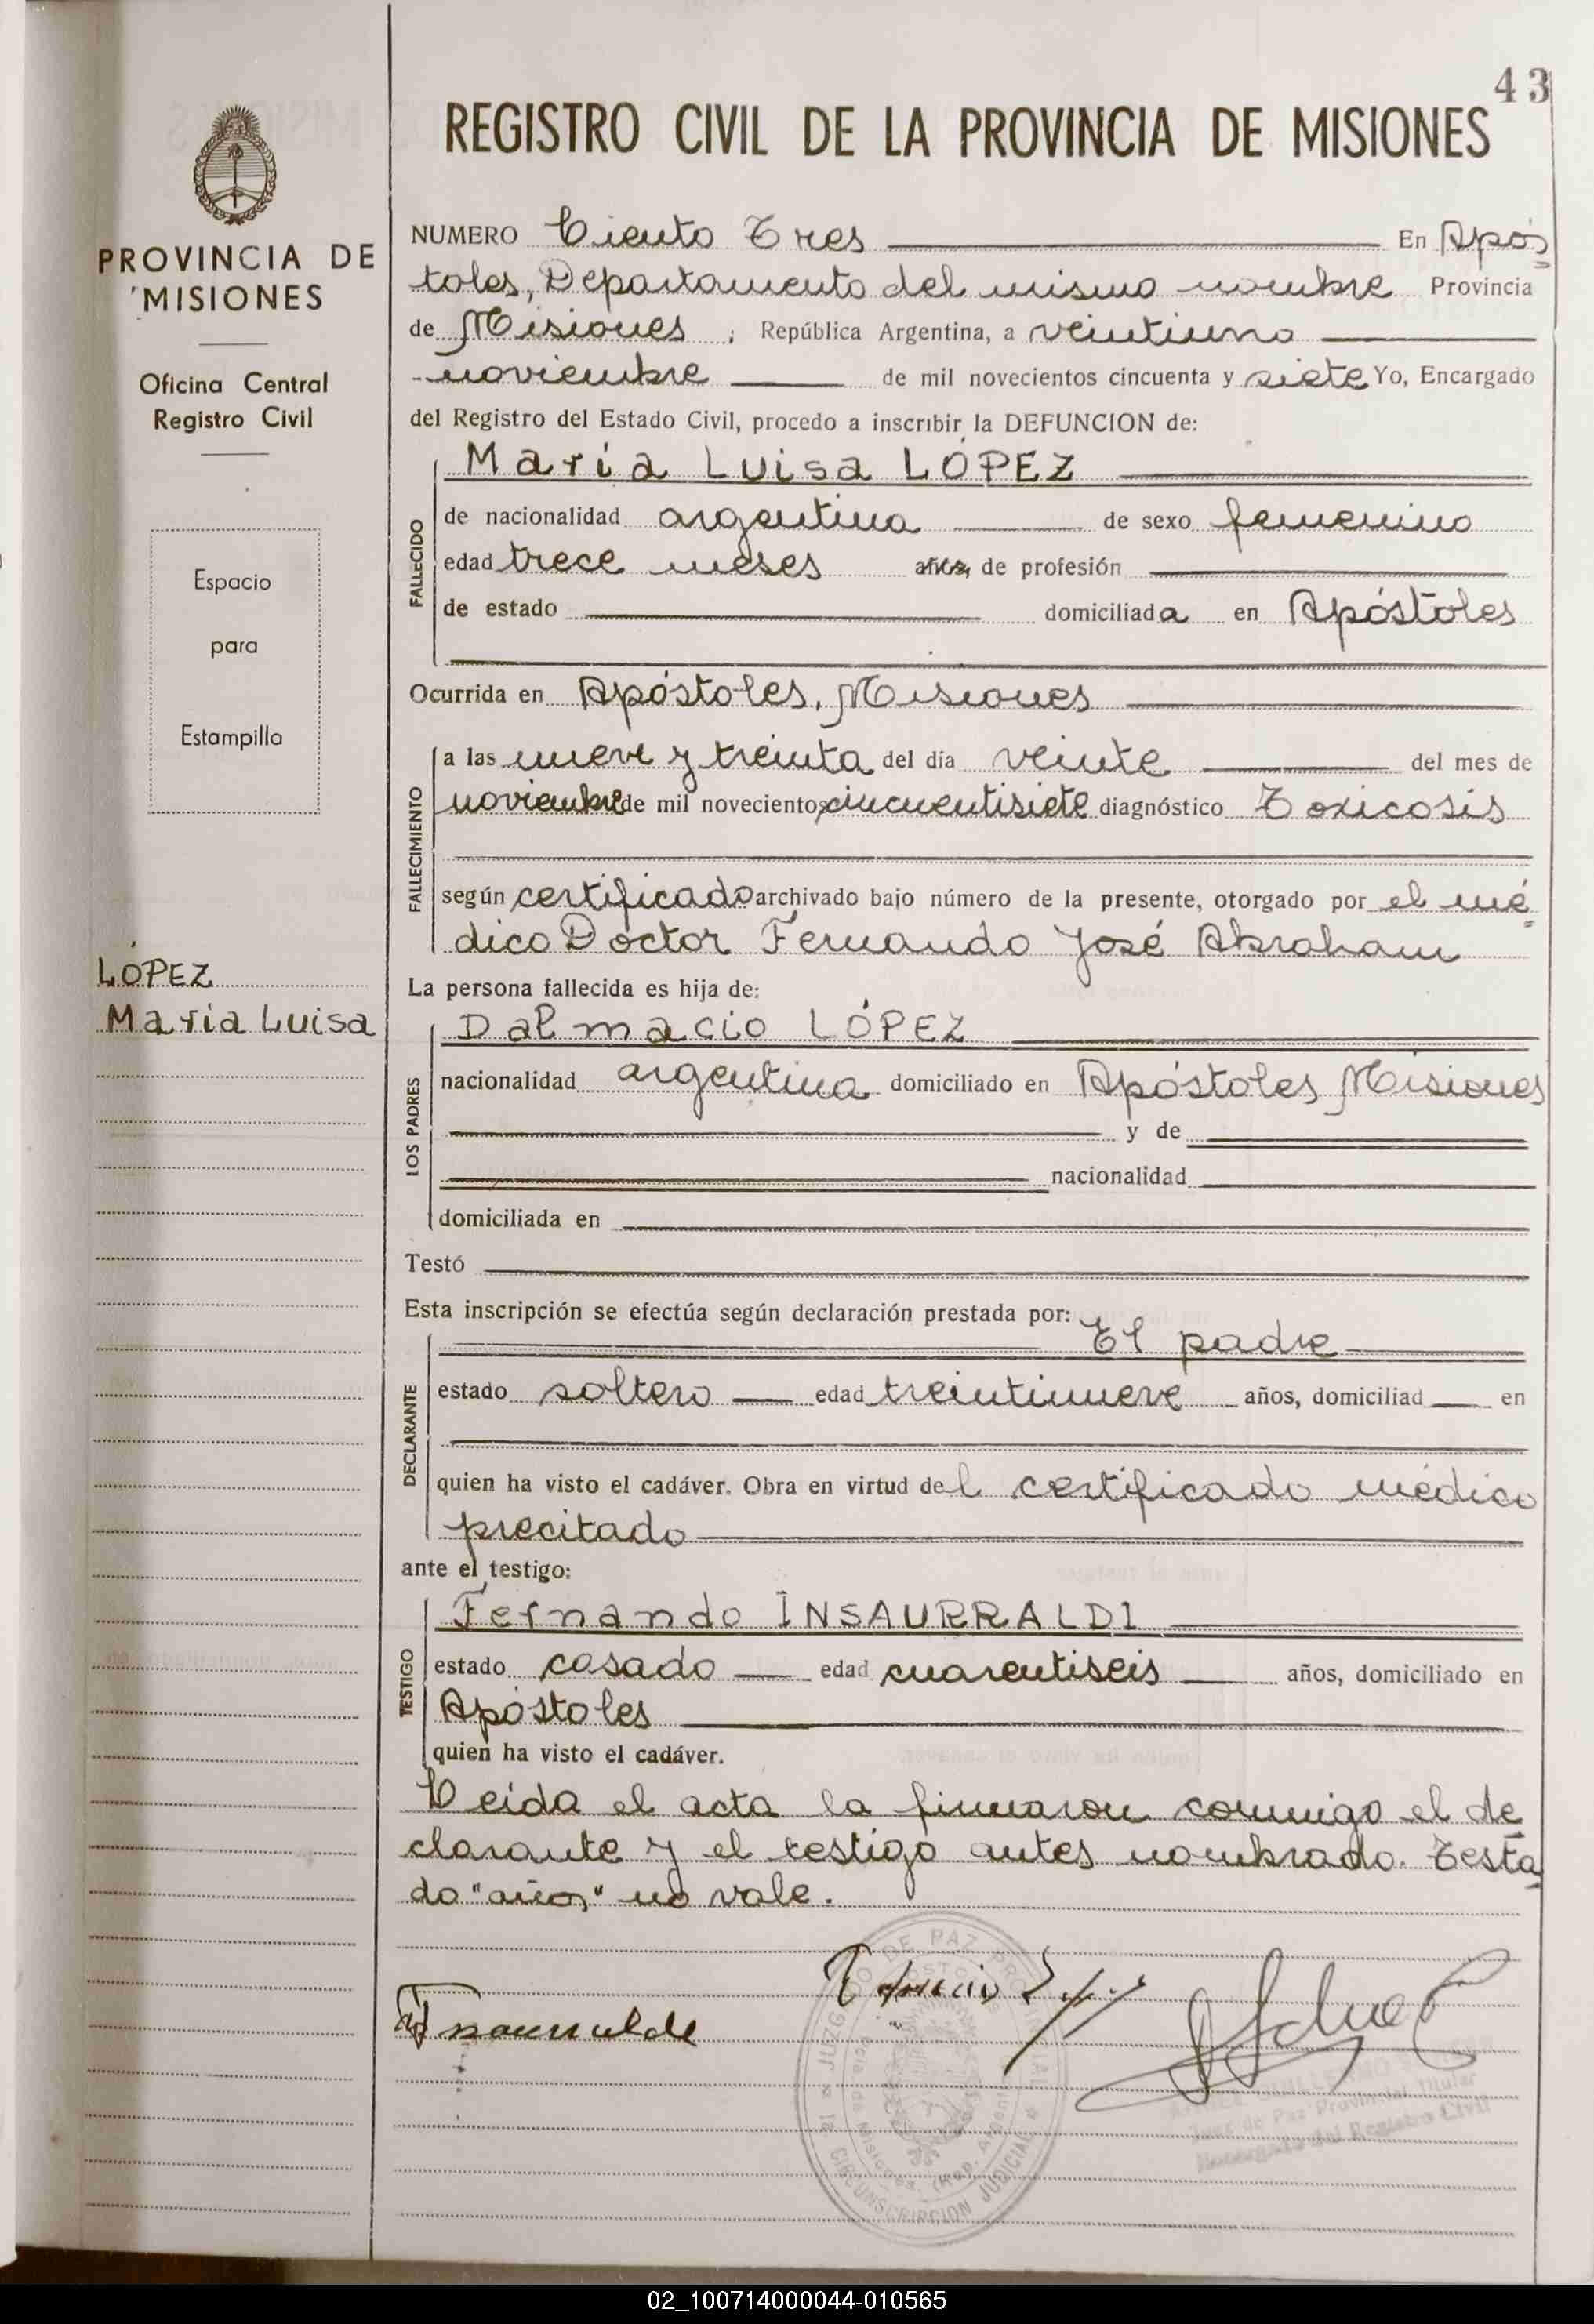 43
REGISTRO CIVIL DE LA PROVINCIA DE MISIONES
PROVINCIA DE
MISIONES
Oficina Central
Registro Civil
Espacio
para
Estampilla
LÓPEZ
Maria Luisa
NUMERO Ciento Tres En Após
toles, Departamento del mismo nombre Provincia
de Misiones ; República Argentina, a veintiuno
noviembre de mil novecientos cincuenta y siete Yo, Encargado
del Registro del Estado Civil, procedo a inscribir la DEFUNCION de:
María Luisa LÓPEZ
FALLECIDO
de nacionalidad argentina de sexo femenino
edad trece meses años, de profesión
de estado domiciliada en Apóstoles
Ocurrida en Apóstoles, Misiones
FALLECIMIENTO
a las nueve y treinta del día veinte del mes de
noviembre de mil novecientos cincuentisiete diagnóstico Toxicosis
según certificado archivado bajo número de la presente, otorgado por el mé
dico Doctor Fernando José Abraham
La persona fallecida es hija de:
LOS PADRES
Dalmacio LÓPEZ
nacionalidad argentina domiciliado en Apóstoles Misiones
y de
nacionalidad
domiciliada en
Testó
Esta inscripción se efectúa según declaración prestada por:
El padre
DECLARANTE
estado soltero edad treintinueve años, domiciliad en
quien ha visto el cadáver. Obra en virtud del certificado médico
precitado
ante el testigo:
TESTIGO
Fernando INSAURRALDI
estado casado edad cuarentiseis años, domiciliado en
Apóstoles
quien ha visto el cadáver.
Leida el acta la firmaron conmigo el de
clarante y el testigo antes nombrado. Testa
do "años," no vale.
JUZGADO DE PAZ PROVINCIAL
CIRCUNSCRIPCION JUDICIAL
Juez de Paz Provincial Titular
Encargado del Registro Civil
02_100714000044-010565